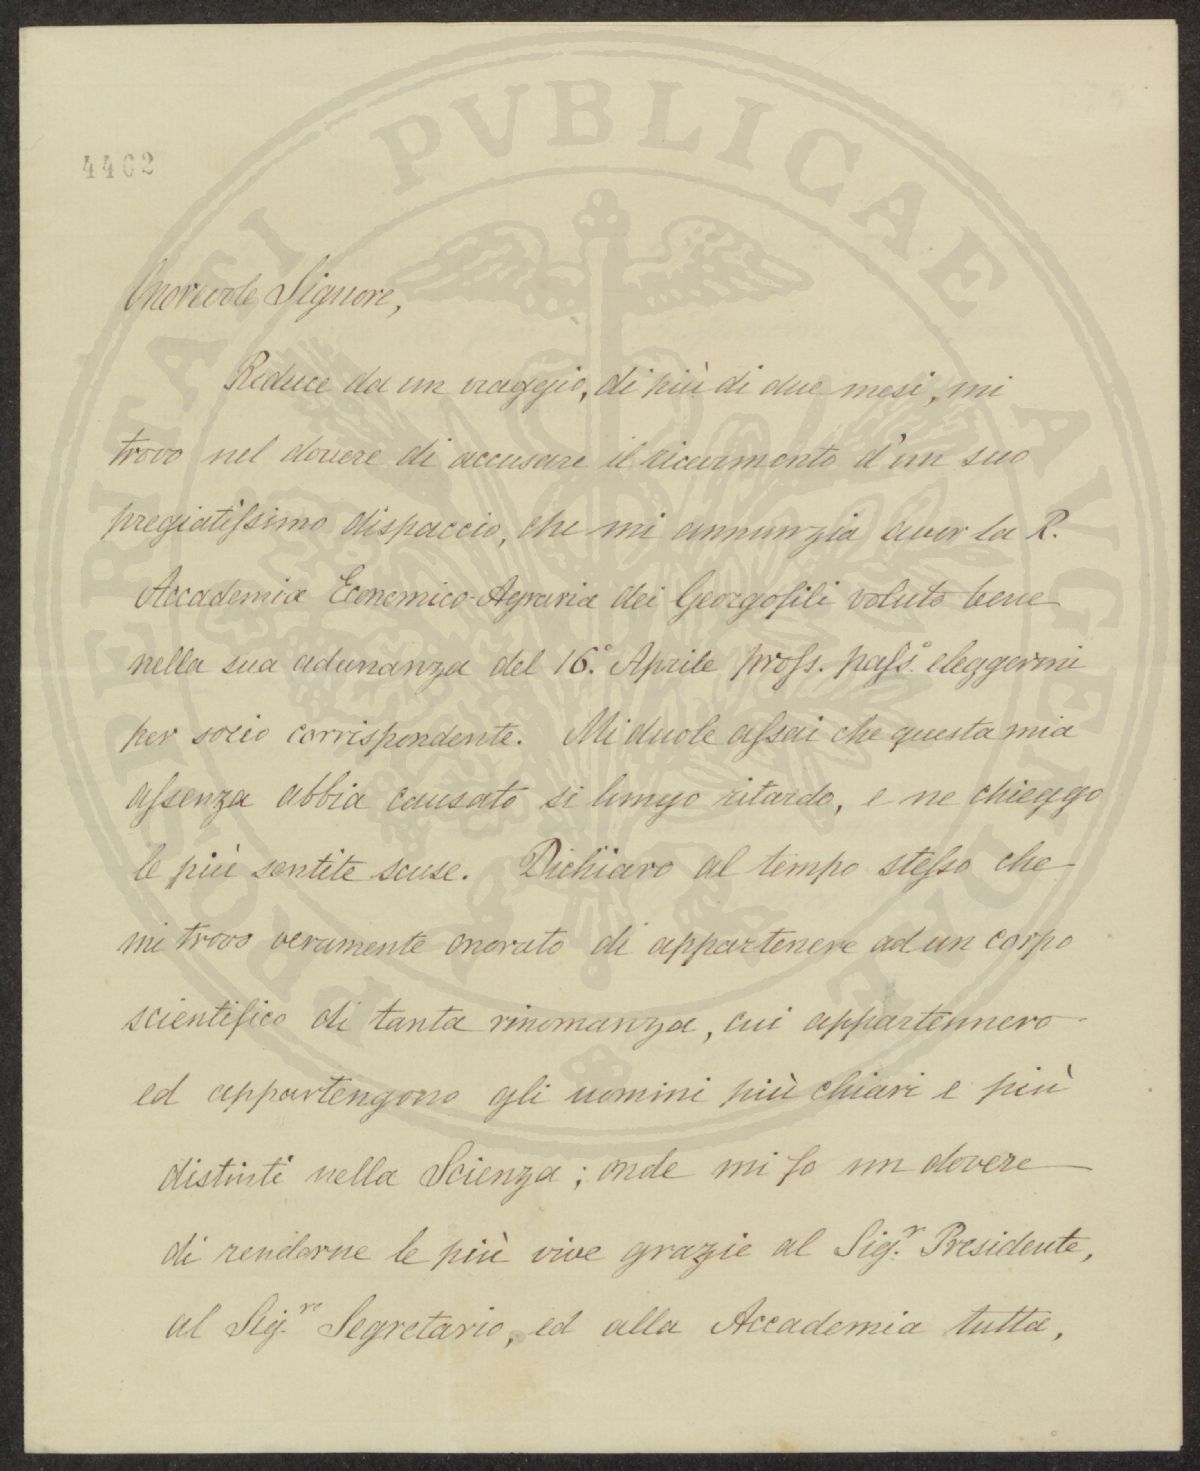 4402
Onorevole Signore,
Reduce da un viaggio, di più di due mesi, mi
trovo nel dovere di accusare il ricevimento d'un suo
pregiatissimo dispaccio, che mi annunzia aver la R.
Accademia Economico-Agraria dei Georgofili voluto bene
nella sua adunanza del 16.° Aprile pross. pass.° eleggermi
per socio corrispondente. Mi duole assai che questa mia
assenza abbia causato si lungo ritardo, e ne chieggo
le più sentite scuse. Dichiaro al tempo stesso che
mi trovo veramente onorato di appartenere ad un corpo
scientifico di tanta rinomanza, cui appartennero
ed appartengono gli uomini più chiari e più
distinti nella Scienza; onde mi fo un dovere
di renderne le più vive grazie al Sig.r Presidente,
al Sig.re Segretario, ed alla Accademia tutta,
PROSPERITATI PVBLICAE AVGENDAE